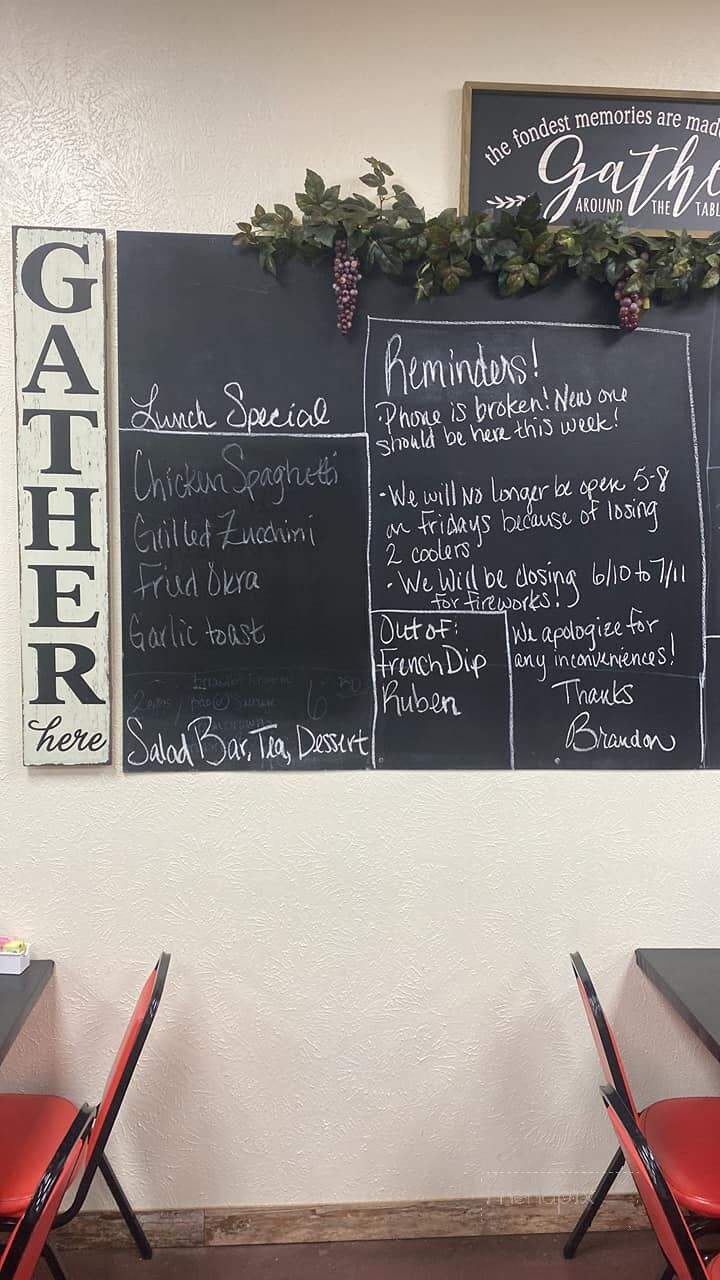 the fondest memories are mad
Gathe
AROUND THE TABL
GATHER
here
Lunch Special
Chicken Spaghetti
Grilled Zucchini
Fried Okra
Garlic toast
Salad Bar, Tea, Dessert
Reminders!
·Phone is broken! New one
should be here this week!
·We will No longer be open 5-8
on Fridays because of losing
2 coolers
·We Will be closing 6/10 to 7/11
for fireworks!
Out of:
French Dip
Ruben
We apologize for
any inconveniences!
Thanks
Brandon
menupix